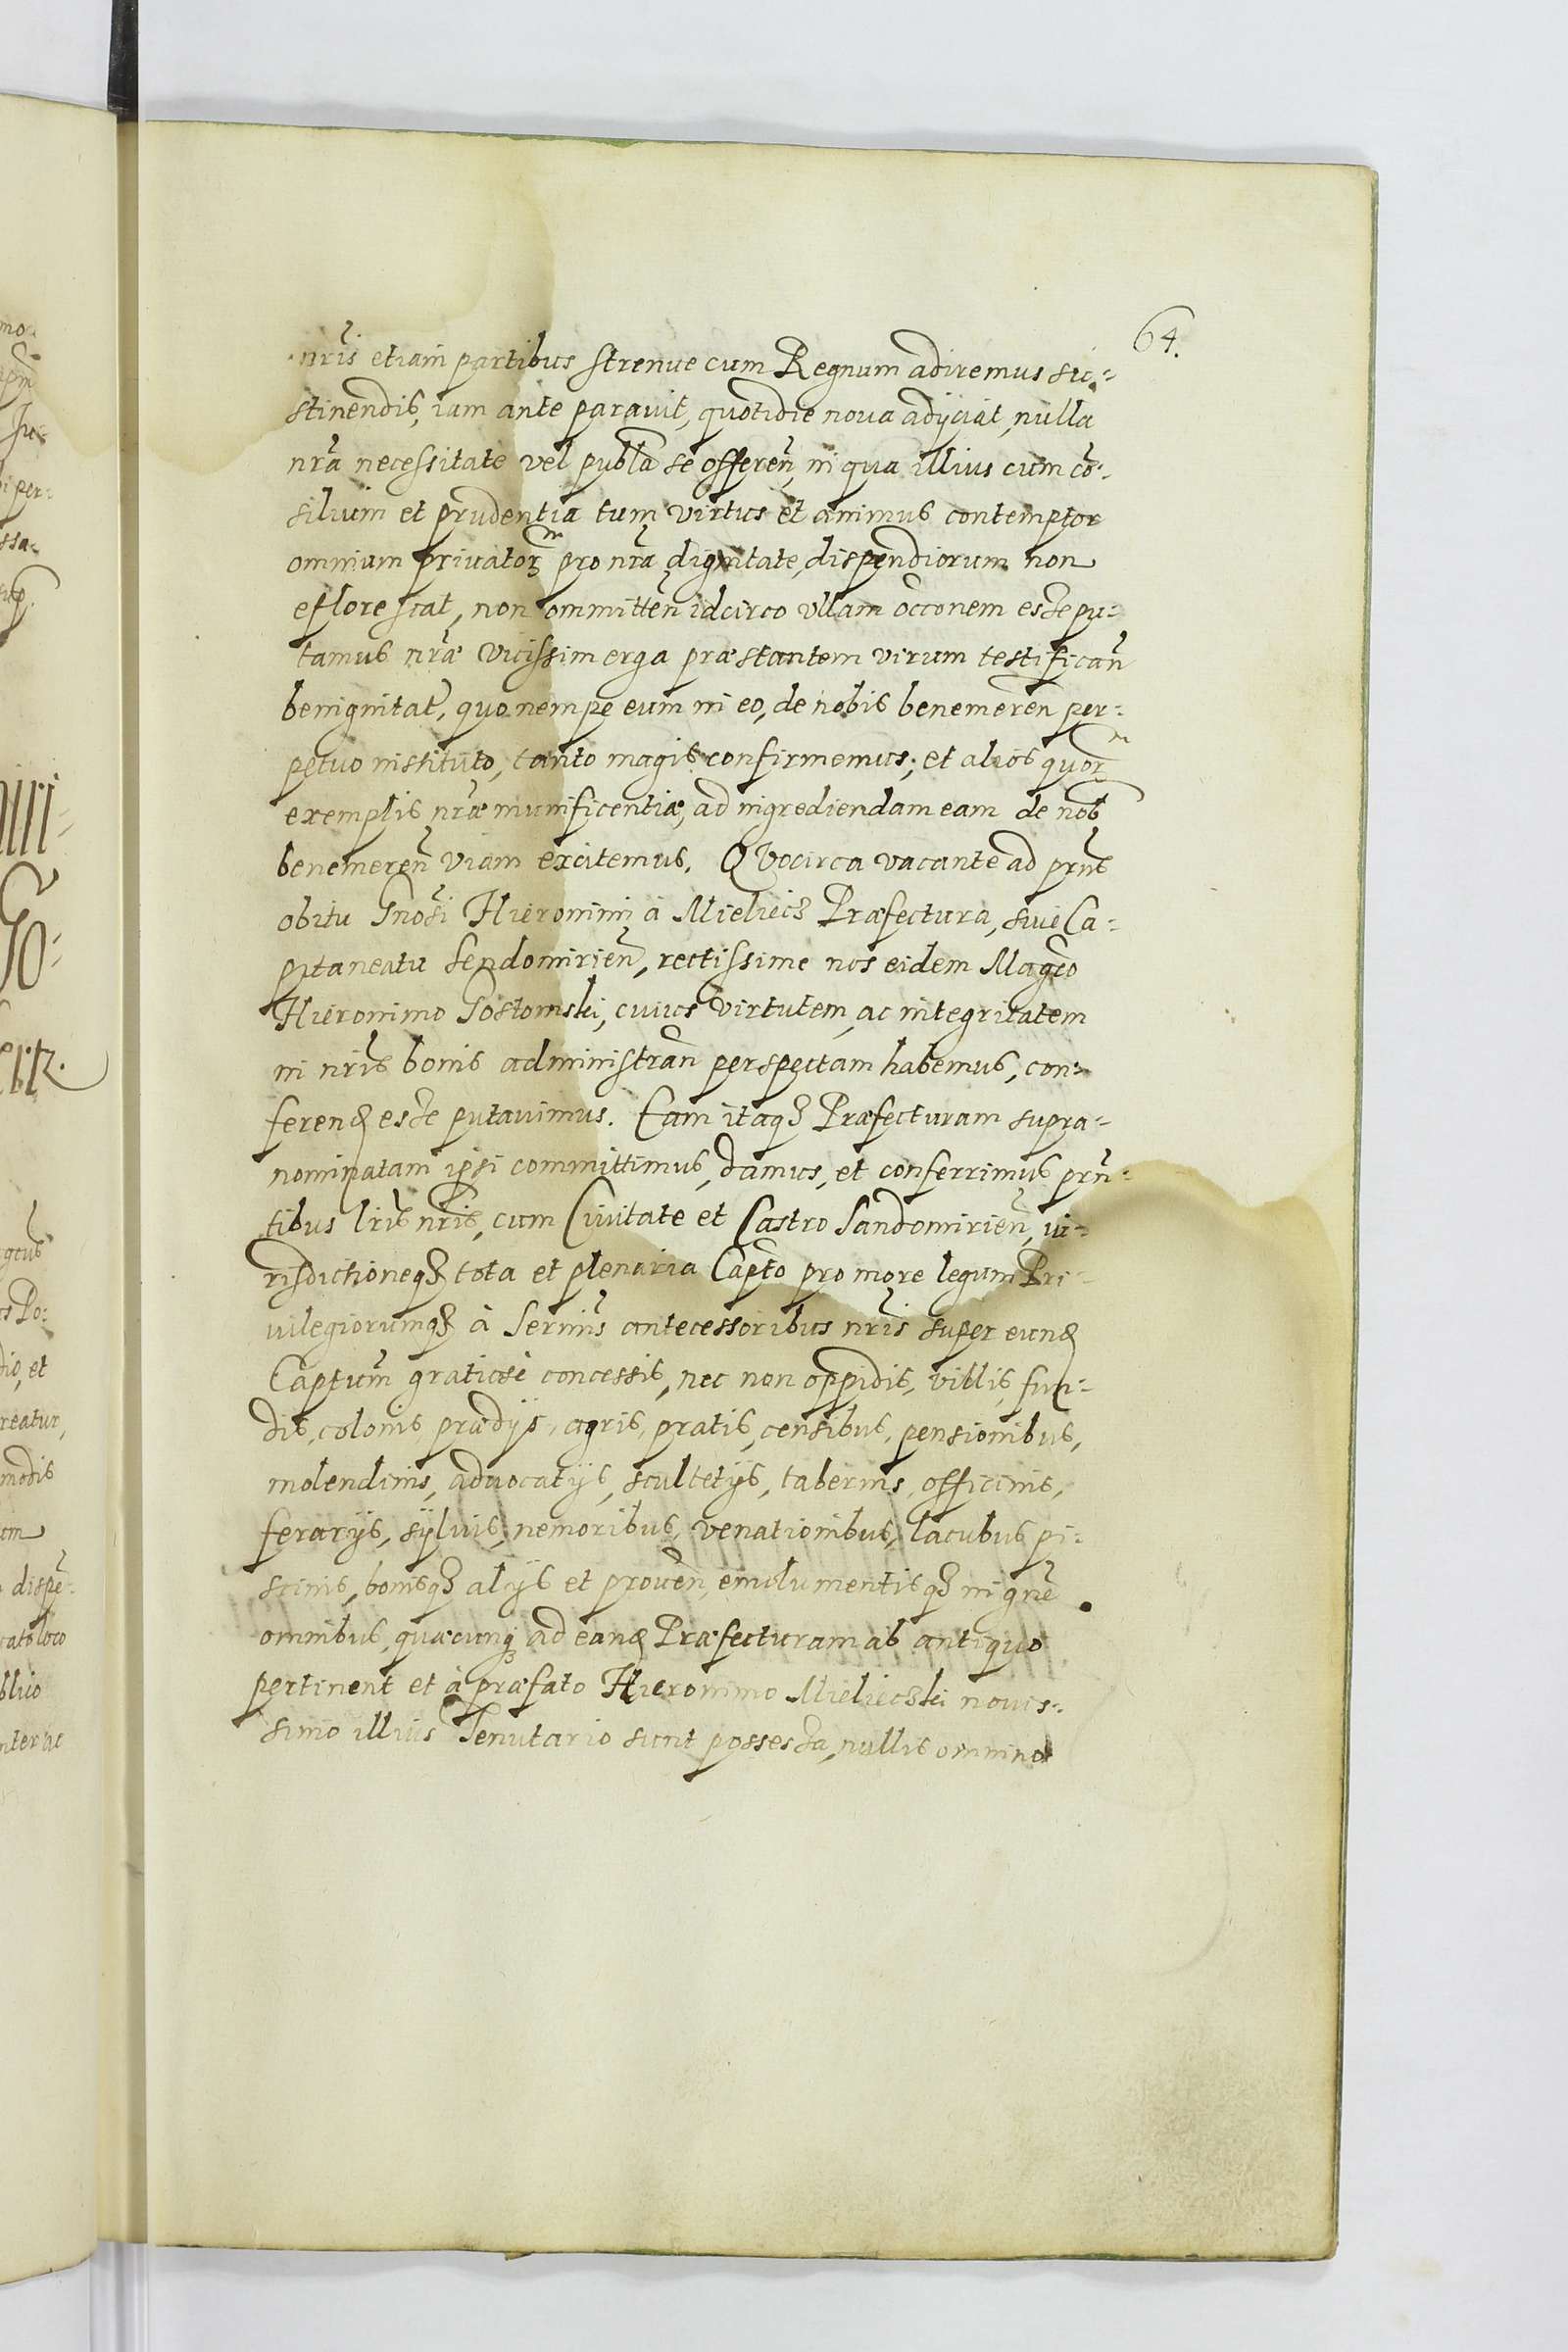 64.
nrīs etiam partibus strenue cum Regnum adiremus su-
stinendis, iam ante parauit, quotidie noua adijciat, nulla
nrā necessitate vel publā se offeren̄, in qua illius cum cō-
silium et prudentia tum virtus et animus contemptor
omnium priuatorm pro nrā dignitate, dispendiorum non
eflorescat, non ommitten̄ idcirco vllam occōnem esse pu-
tamus nrāe vicissim erga præstantem virum testifican̄
benignitat̄, quo nempe eum in eo, de nobis benemeren̄ per-
petuo instituto, tanto magis confirmemus; et alios quorm
exemplis nrāe munificentiæ, ad ingrediendam eam de nob̄
benemeren̄ viam excitemus. Quocirca vacante ad prn̄t
obitu Gnosī Hieronimi à Mieliecz Præfectura, siue Ca-
pitaneatu Sendomirien̄, rectissime nos eidem Magc̄o
Hieronimo Gostomski, cuius virtutem, ac integritatem
in nrīs bonis administran̄ perspectam habemus, con-
ferend̄ esse putauimus. Eam itaq3 Præfecturam supra-
nominatam ipsi committimus, damus, et conferrimus prn̄-
tibus lrīs nrīs, cum Ciuitate et Castro Sandomirien̄, iu-
risdictioneq3 tota et plenaria Capt̄o pro more legum Pri-
uilegiorumq3 à Serm̄is antecessoribus nrīs super eund̄
Captum̄ gratiose concessis, nec non oppidis, villis, fun-
dis, colonis, prædijs, agris, pratis, censibus, pensionibus,
molendinis, aduocatijs, scultetijs, tabernis, officinis,
ferarijs, syluis, nemoribus, venationibus, lacubus pi-
scinis, bonisq3 alijs et prouen̄, emolumentisq3 in gnē
omnibus, quæcunq3 ad eand̄ Præfecturam ab antiquo
pertinent et à præfato Hieronimo Mielieczki nouis-
simo illius Tenutario sunt possessa, nullis omnino